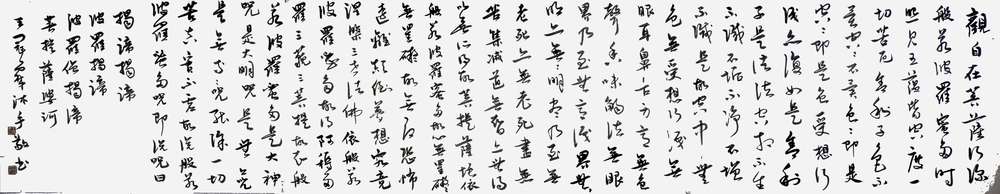 觀自在菩薩行深
般若波羅蜜多時
照見五蘊皆空度
一切苦厄舍利子色不
異空空不異色色即是
空空即是色受想行
識亦復如是舍利
子是諸法空相不生
不滅不垢不淨不增
不減是故空中無
色無受想行識無
眼耳鼻舌身意無色
聲香味觸法無眼
界乃至無意識界無
無明亦無無明盡乃至無
老死亦無老死盡無
苦集滅道無智亦無得
以無所得故菩提薩埵依
般若波羅蜜多故心無罣礙
無罣礙故無有恐怖
遠離顛倒夢想究竟
涅槃三世諸佛依般若
波羅蜜多故得阿耨多
羅三藐三菩提故知般
若波羅蜜多是大神
咒是大明咒是無上咒
是無等等咒能除一切
苦真實不虛故說般若
波羅蜜多咒即說咒曰
揭諦揭諦
波羅揭諦
波羅僧揭諦
菩提薩婆訶
沐手敬書